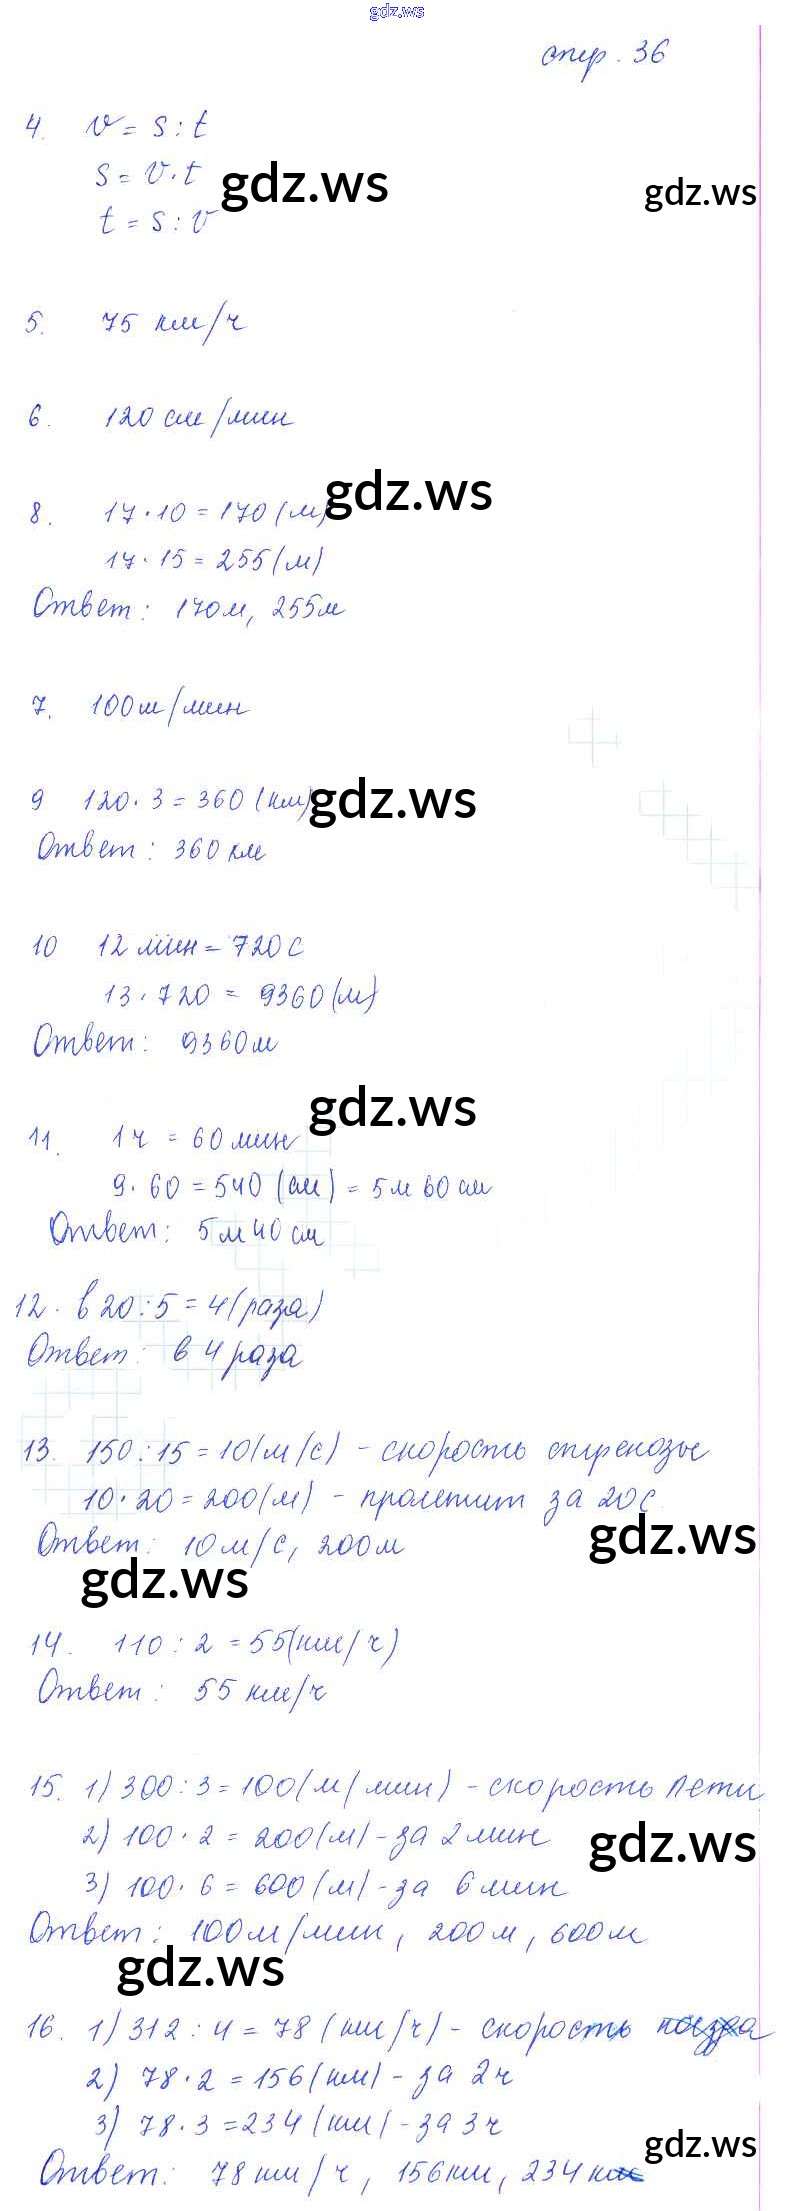 gdz.ws
стр. 36
4. v = s : t
s = v · t
t = s : v
gdz.ws
gdz.ws
5. 75 км/ч
6. 120 см/мин
gdz.ws
8. 17 · 10 = 170 (м)
17 · 15 = 255 (м)
Ответ: 170м, 255м
7. 100м/мин
9 120 · 3 = 360 (км)
gdz.ws
Ответ: 360 км
10 12 мин = 720 с
13 · 720 = 9360 (м)
Ответ: 9360м
gdz.ws
11. 1 ч = 60 мин
9 · 60 = 540 (см) = 5 м 60 см
Ответ: 5 м 40 см
12. в 20 : 5 = 4 (раза)
Ответ: в 4 раза
13. 150 : 15 = 10 (м/с) - скорость стрекозы
10 · 20 = 200 (м) - пролетит за 20 с.
Ответ: 10 м/с, 200м
gdz.ws
gdz.ws
14. 110 : 2 = 55 (км/ч)
Ответ: 55 км/ч
15. 1) 300 : 3 = 100 (м/мин) - скорость Пети
2) 100 · 2 = 200 (м) - за 2 мин
gdz.ws
3) 100 · 6 = 600 (м) - за 6 мин
Ответ: 100 м/мин, 200 м, 600 м
gdz.ws
16. 1) 312 : 4 = 78 (км/ч) - скорость поезда
2) 78 · 2 = 156 (км) - за 2 ч
3) 78 · 3 = 234 (км) - за 3 ч
gdz.ws
Ответ: 78 км/ч, 156 км, 234 км